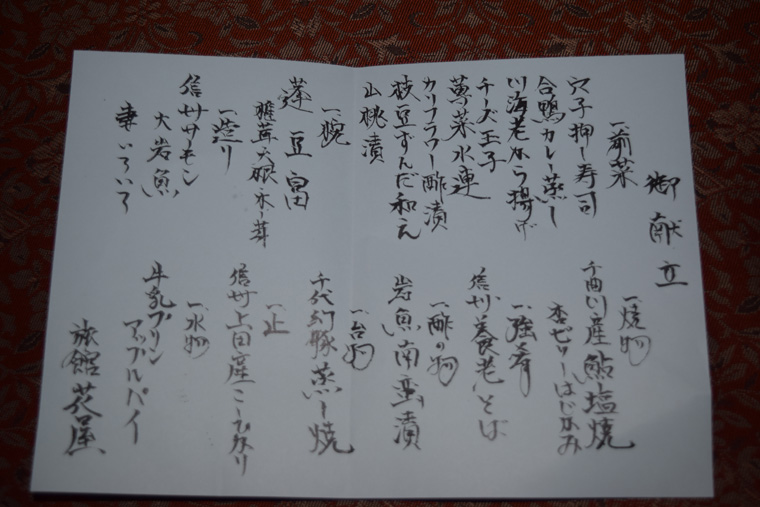 御献立
一前菜
穴子押し寿司
合鴨カレー蒸し
川海老から揚げ
チーズ玉子
蓴菜水連
カリフラワー酢漬
枝豆ずんだ和え
山桃漬
一椀
蓮豆富
椎茸 大根 氷し茸
一造り
信州サーモン
大岩魚
妻いろいろ
一焼物
千曲川産鮎塩焼
杏ゼリーはじかみ
一強肴
信州美養老そば
一酢の物
岩魚南蛮漬
一台物
千代幻豚蒸し焼
一止
信州上田産こしひかり
一水物
牛乳プリン
アップルパイ
旅館 花屋